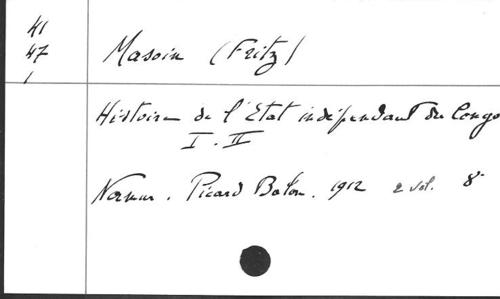 41
47
1
Masoin (Fritz)
Histoire de l'Etat indépendant du Congo
I. II
Namur. Picard Balon. 1912 2 vol. 8°